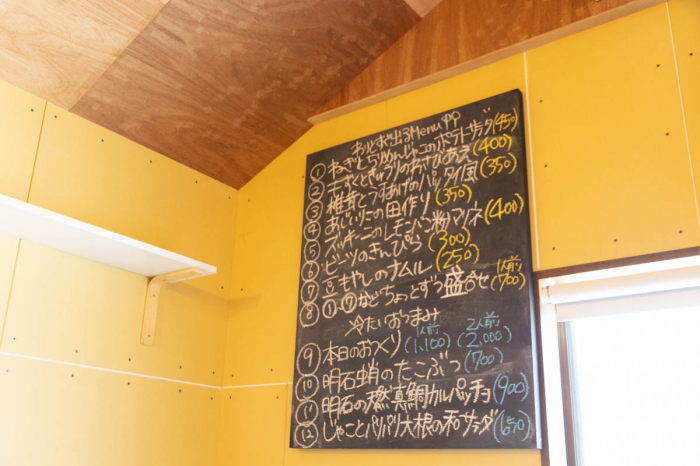 わりとすぐ出るMenu
① ねぎとちりめんじゃこのポテトサラダ (450)
② もずくときゅうりのおさしみ (400)
③ 椎茸とうすあげのパッタイ風 (350)
④ あじいりこの田作り (350)
⑤ ズッキーニのレモンパン粉マリネ (400)
⑥ ビーツのきんぴら (300)
⑦ 豆もやしのナムル (250)
⑧ ①〜⑦などちょっとずつ盛合せ 1人前 (700)
冷たいおつまみ
⑨ 本日のお〆り 1人前 (1,100) 2人前 (2,000)
⑩ 明石蛸のたこぶつ (700)
⑪ 明石の燃真鯛カルパッチョ (900)
⑫ じゃことパリパリ大根の和サラダ (650)